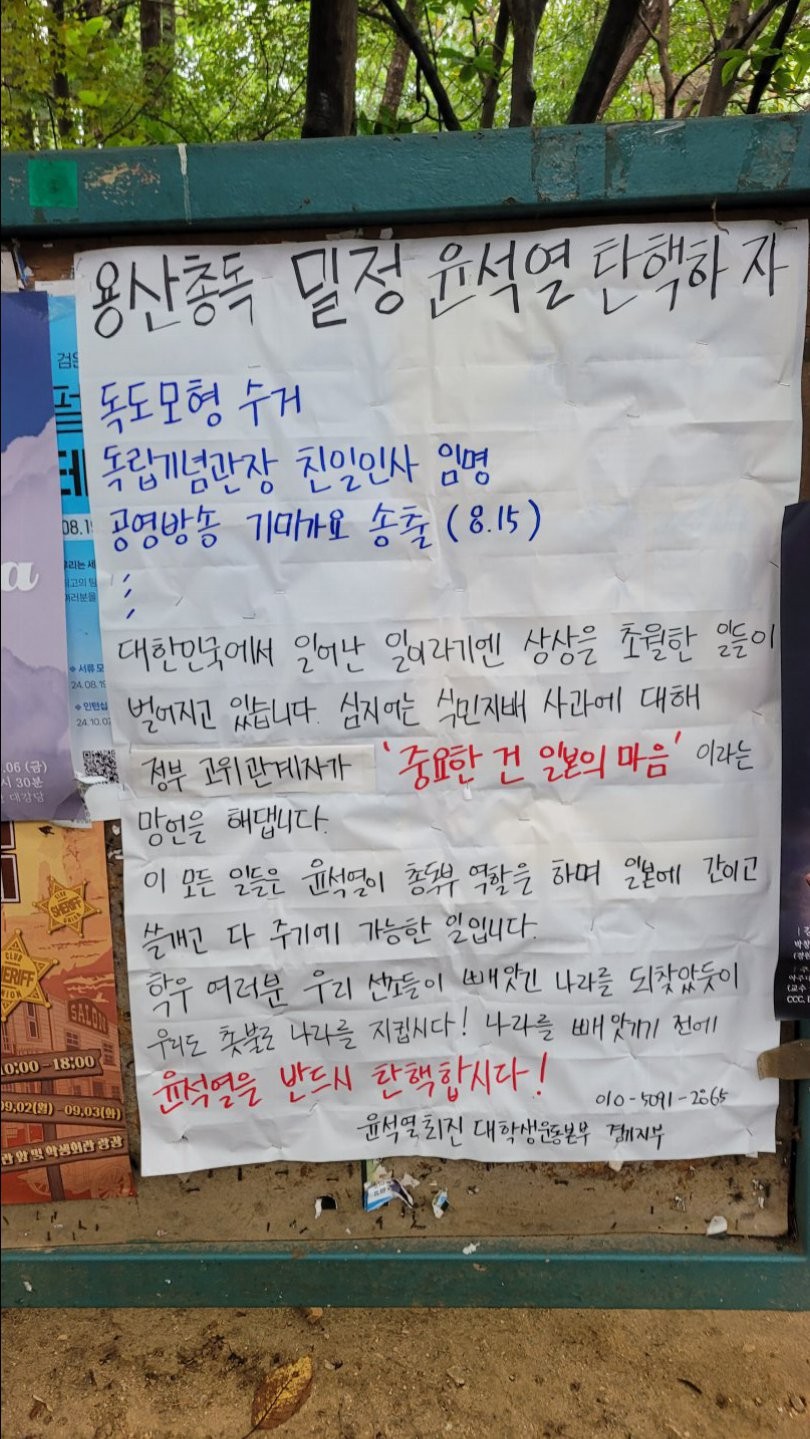 용산총독 밀정 윤석열 탄핵하자
독도모형 수거
독립기념관장 친일인사 임명
공영방송 기미가요 송출 (8.15)
대한민국에서 일어난 일이라기엔 상상을 초월한 일들이
벌어지고 있습니다. 심지어는 식민지배 사과에 대해
정부 고위관계자가 '중요한 건 일본의 마음' 이라는
망언을 해댑니다.
이 모든 일들은 윤석열이 총독부 역할을 하며 일본에 간이고
쓸개고 다 주기에 가능한 일입니다.
학우 여러분 우리 선조들이 빼앗긴 나라를 되찾았듯이
우리도 촛불로 나라를 지킵시다! 나라를 빼앗기기 전에
윤석열을 반드시 탄핵합시다!
010-5091-2865
윤석열퇴진 대학생운동본부 경기지부
a
검은
08.19
24.10.0
.06 (금)
시 30분
대강당
SHERIFF
SHERIFF
CLUB
UNION
SALON
10:00 -18:00
09.02(월) -09.03(화)
관 앞 및 학생회관 광장
CCC